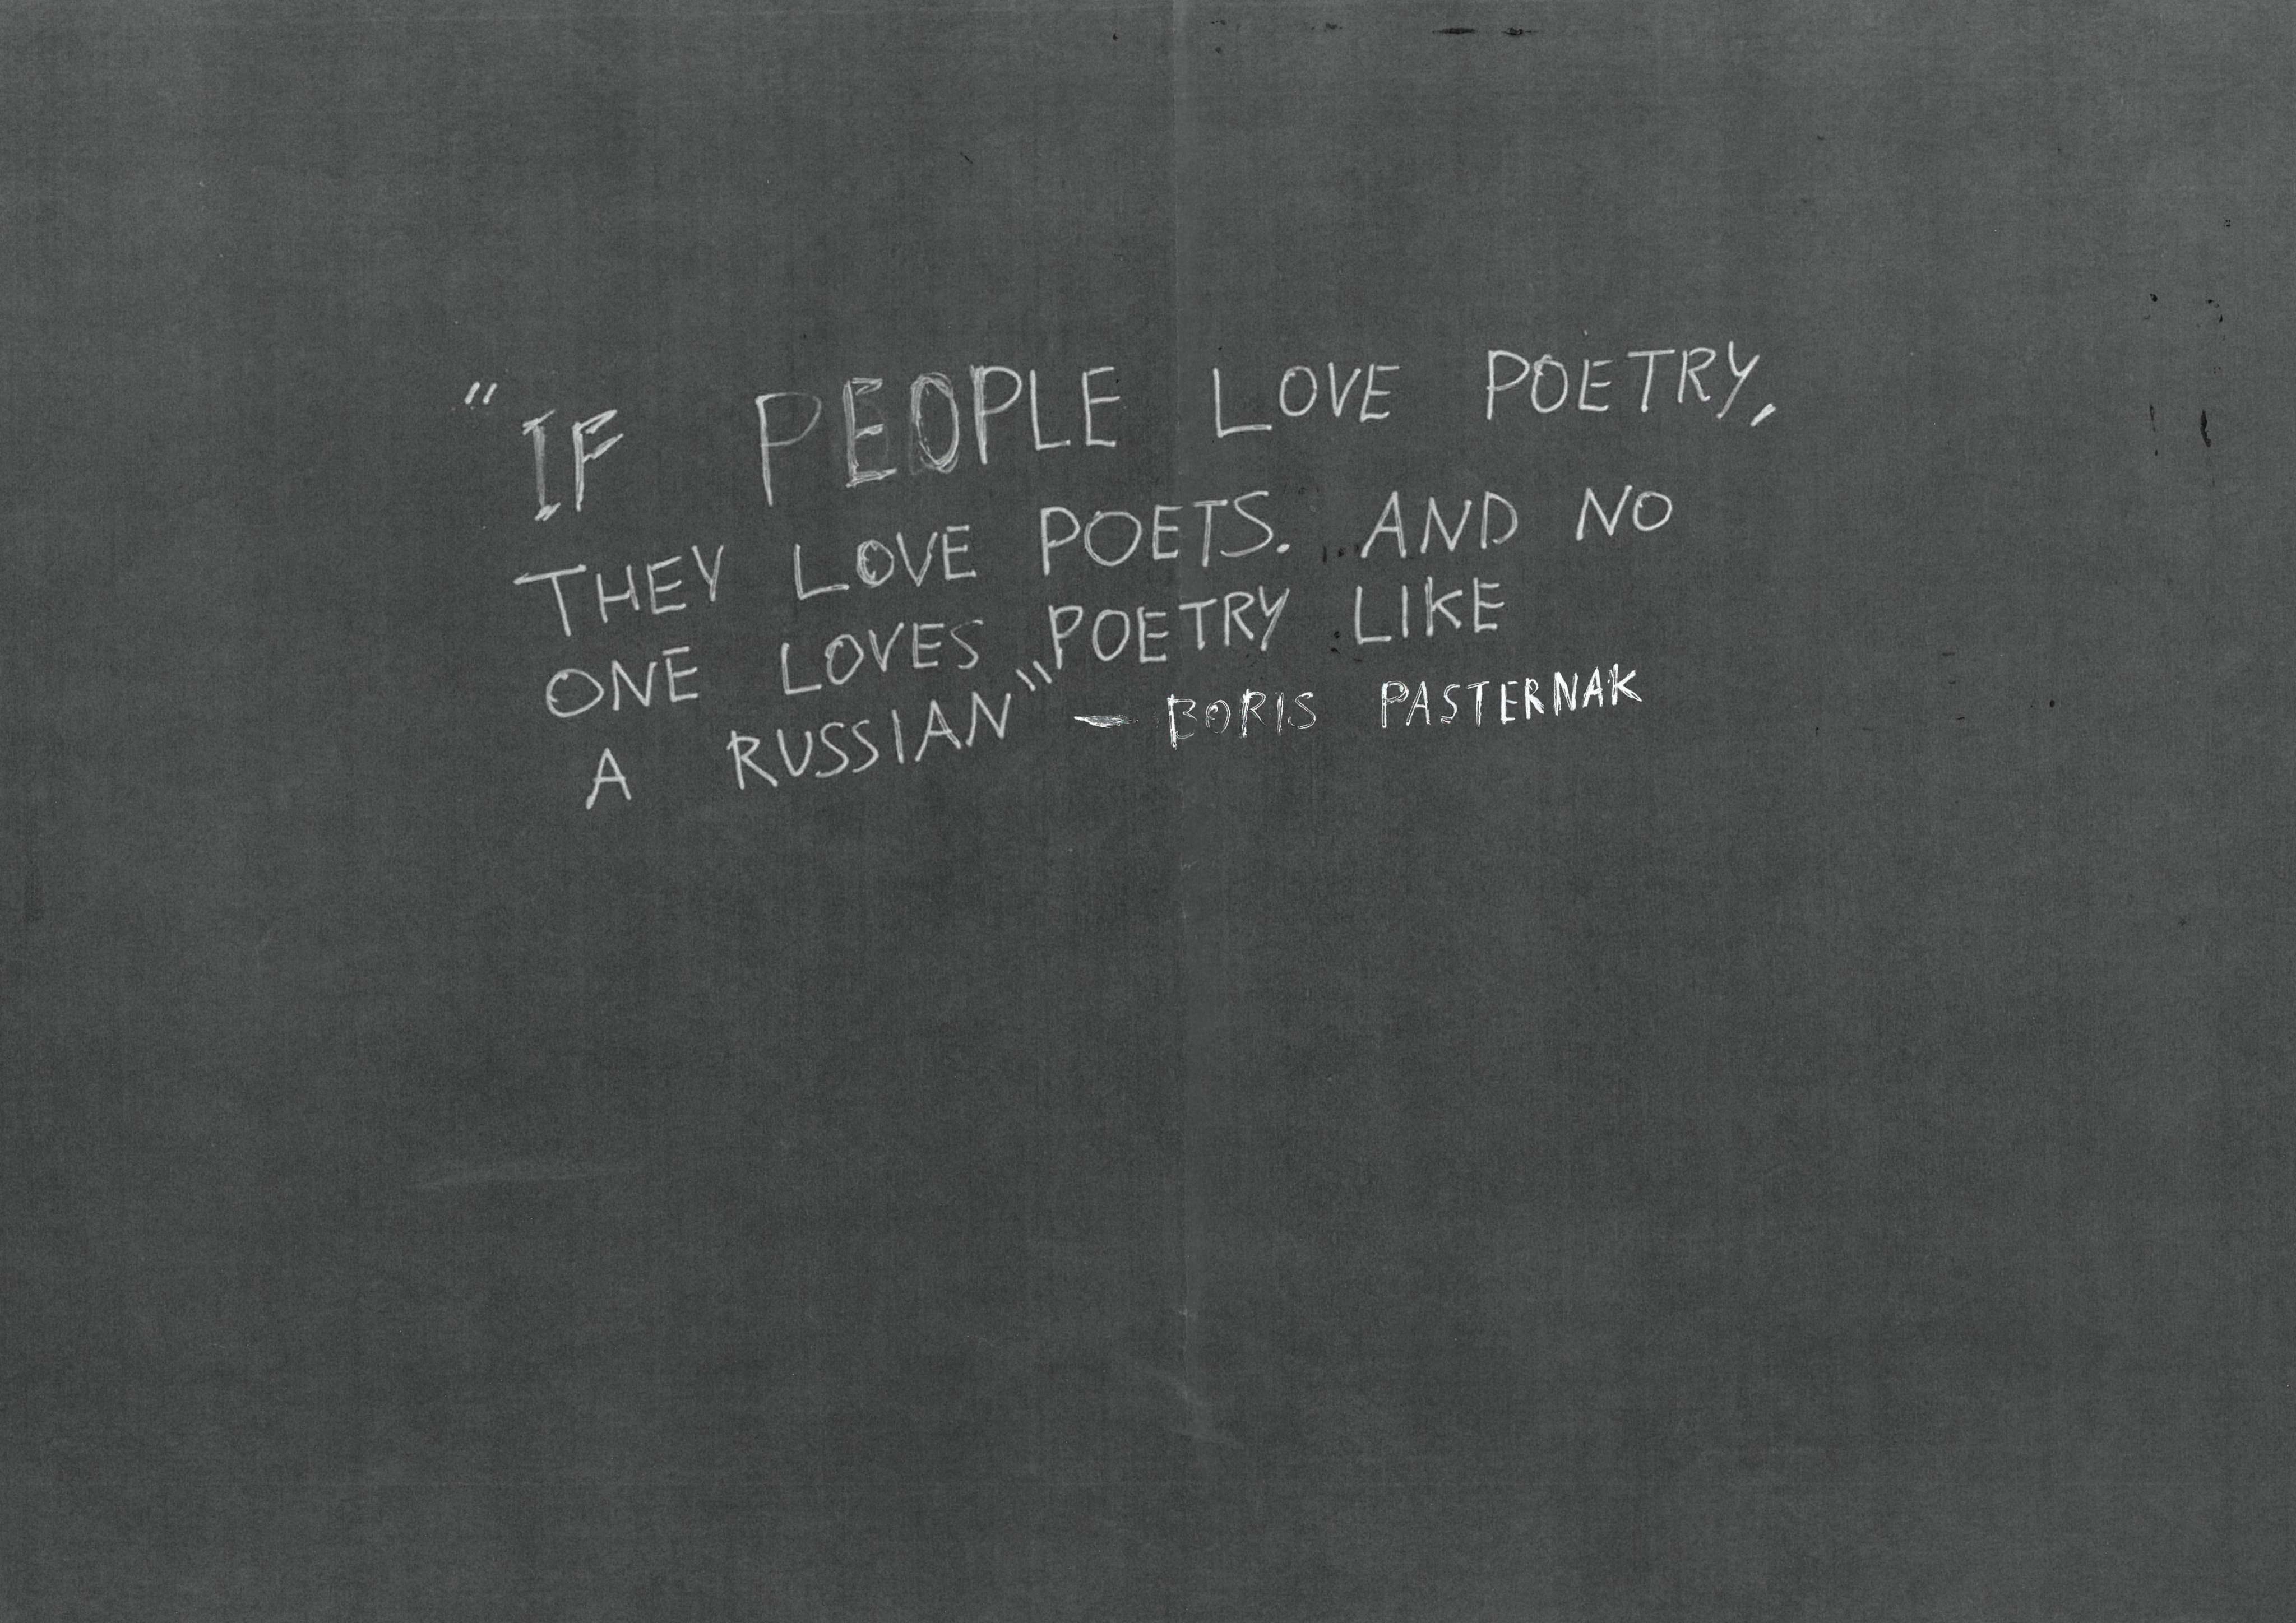 "IF PEOPLE LOVE POETRY,
THEY LOVE POETS. AND NO
ONE LOVES POETRY LIKE
A RUSSIAN" — BORIS PASTERNAK